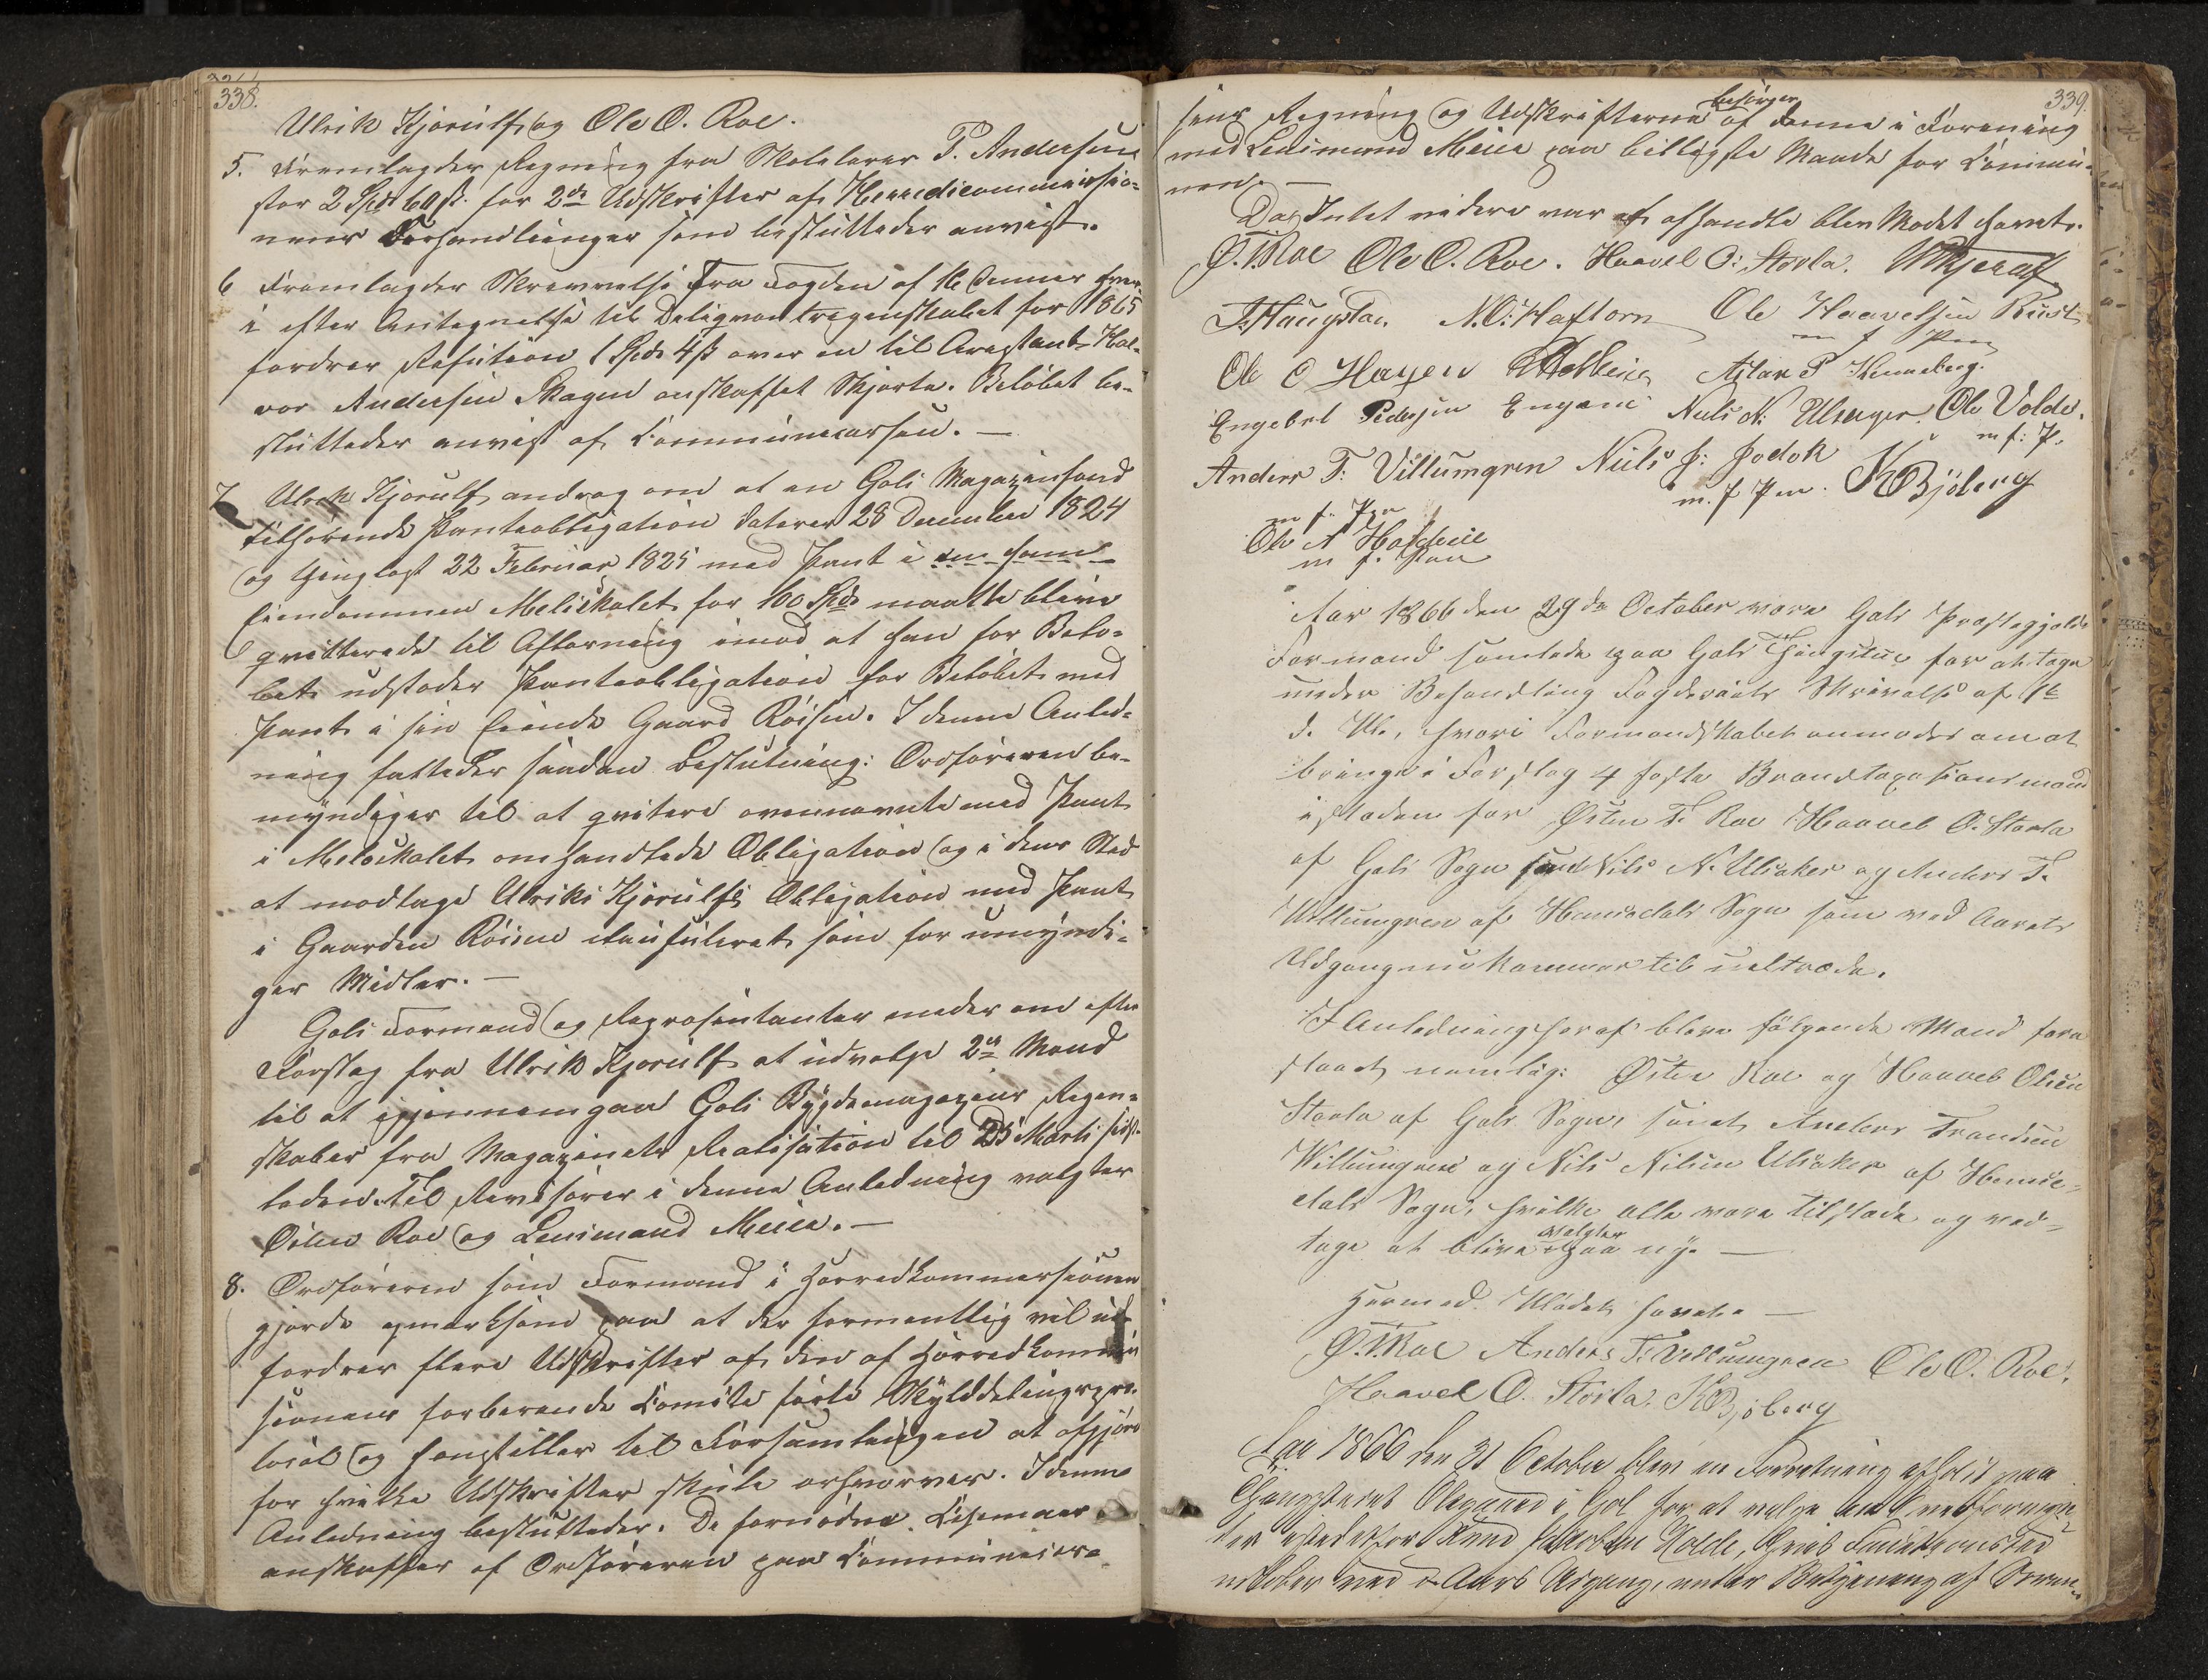 338.
Ulrik Kjørulf og Ole O. Roe.
5. Fremlagdes Regning fra Skolelærer P. Andersen
stor 2 Spd 60 ß. for 2de Udskrifter af Herredscommissio=
nens Forhandlinger som besluttedes anvist.
6 Fremlagdes Skrivelse fra Fogden af 16 dennes hvor
i efter Antegnelse til Deliqventregnskabet for 1865
fordres Refusion 1 Spd 4 ß over en til Arrestant Hal=
vor Andersen Skagen anskaffet Skjorte. Beløbet be=
sluttedes anvist af Communecassen. —
7 Ulrik Kjørulf androg om at en Gols Magazinfond
tilhørende Panteobligation dateret 28 December 1824
og thinglæst 22 Februar 1825 med Pant i
Eiendommen Melickalet for 100 Spd maatte blive
qvitterede til Aflæsning imod at han for Belø=
bet udsteder Panteobligation for Beløbet med
Pant i sin eiende Gaard Röisen. I denne Anled=
ning fattedes saadan Beslutning: Ordføreren be=
myndiges til at qvitere ovennævnte med Pant
i Melickalet omhandlede Obligation og i dens Sted
at modtage Ulriks Kjørulfs Obligation med Pant
i Gaarden Röisen clausuleret som for umyndi=
ges Midler. —
Gols Formænd og Repræsentanter enedes om efter
Forslag fra Ulrik Kjørulf at udvælge 2de Mænd
til at gjennemgaa Gols Bygdemagazins Regn=
skaber fra Magazinets Realisation til 25 Marts sidst=
leden. Til Revisorer i denne Anledning valgtes
Østen Roe og Lensmand Meier. —
8. Ordføreren som Formand i Herredskommissionen
gjorde opmærksom paa at der formentlig vil ud=
fordres flere Udskrifter af den af Herredskommis
sionens forberende Comite førte Skylddelingspro=
tocol og henstiller til Forsamlingen at afgjøre
for hvilke Udskrifter skule erhverves. I denne
Anledning besluttedes: De fornødne Exemplarer
anskaffes af Ordføreren paa Communecas=
339.
sens Regning og Udskrifterne besørges af denne i Forening
med Lensmand Meier paa billigste Maade for Commu=
nen. —
Da Intet videre var at afhandle blev Mødet hævet.
Ø. T. Roe Ole O. Roe. Haavel O: Storla. UKjerulf
T. Haugstar. N. O: Haftorn Ole Haavelsen Rust
m f Pen
Ole O Hagen Aslak P Kinneberg.
Engebret Pedersen Engene Niels N. Ulsager. Ole Volde.
m f: P.
Anders T: Villumgren Niels J: Jodok KBjöberg
m. f Pen.
m f. Pen
Ole A Holdeie
m f. Pen
Aar 1866 den 29de October vare Gols Præstegjelds
Formænd samlede paa Gols Thingstue for at tage
under Behandling Fogderiets Skrivelse af 1ste
d. M., hvori Formandskabet anmodes om at
bringe i Forslag 4 faste Brandtaxationsmænd
istæden for Østen T. Roe Haavel O. Storla
af Gols Sogn samt Nils N. Ulsaker og Anders T.
Willumgren af Hemsedals Sogn som ved Aarets
Udgang nu kommer til udtræde.
I Anledning heraf bleve følgende Mænd fore
slaaet nemlig: Østen Roe og Haavel Olsen
Storla af Gols Sogn, samt Anders Trondsen
Willumgren og Nils Nilsen Ulsaker af Hemse=
dals Sogn, hvilke alle vare tilstede og ved=
tage at blive valgte paa ny. —
Hermed Mödet hævet. —
Ø. T. Roe Anders T: Villumgren Ole O. Roe.
Haavel O. Storla. KBjöberg
Aar 1866 den 31 October blev en Forretning afholdt paa
Thingstedet i Gol for at vælge
istedetfor Knud Holde, hvis Functionstid
udløber ved d. Aars Udgang, under Bestyrelse af